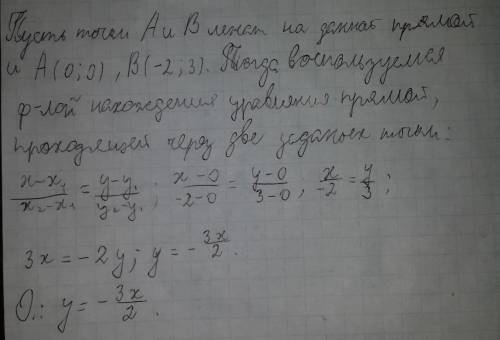 Пусть точки А и В лежат на данной прямой
и А(0;0), В(-2;3). Тогда воспользуемся
ф-лой нахождения уравнения прямой,
проходящей через две заданых точки:
(x-x₁)/(x₂-x₁) = (y-y₁)/(y₂-y₁); (x-0)/(-2-0) = (y-0)/(3-0); x/-2 = y/3;
3x = -2y; y = -3x/2.
О.: y = -3x/2.